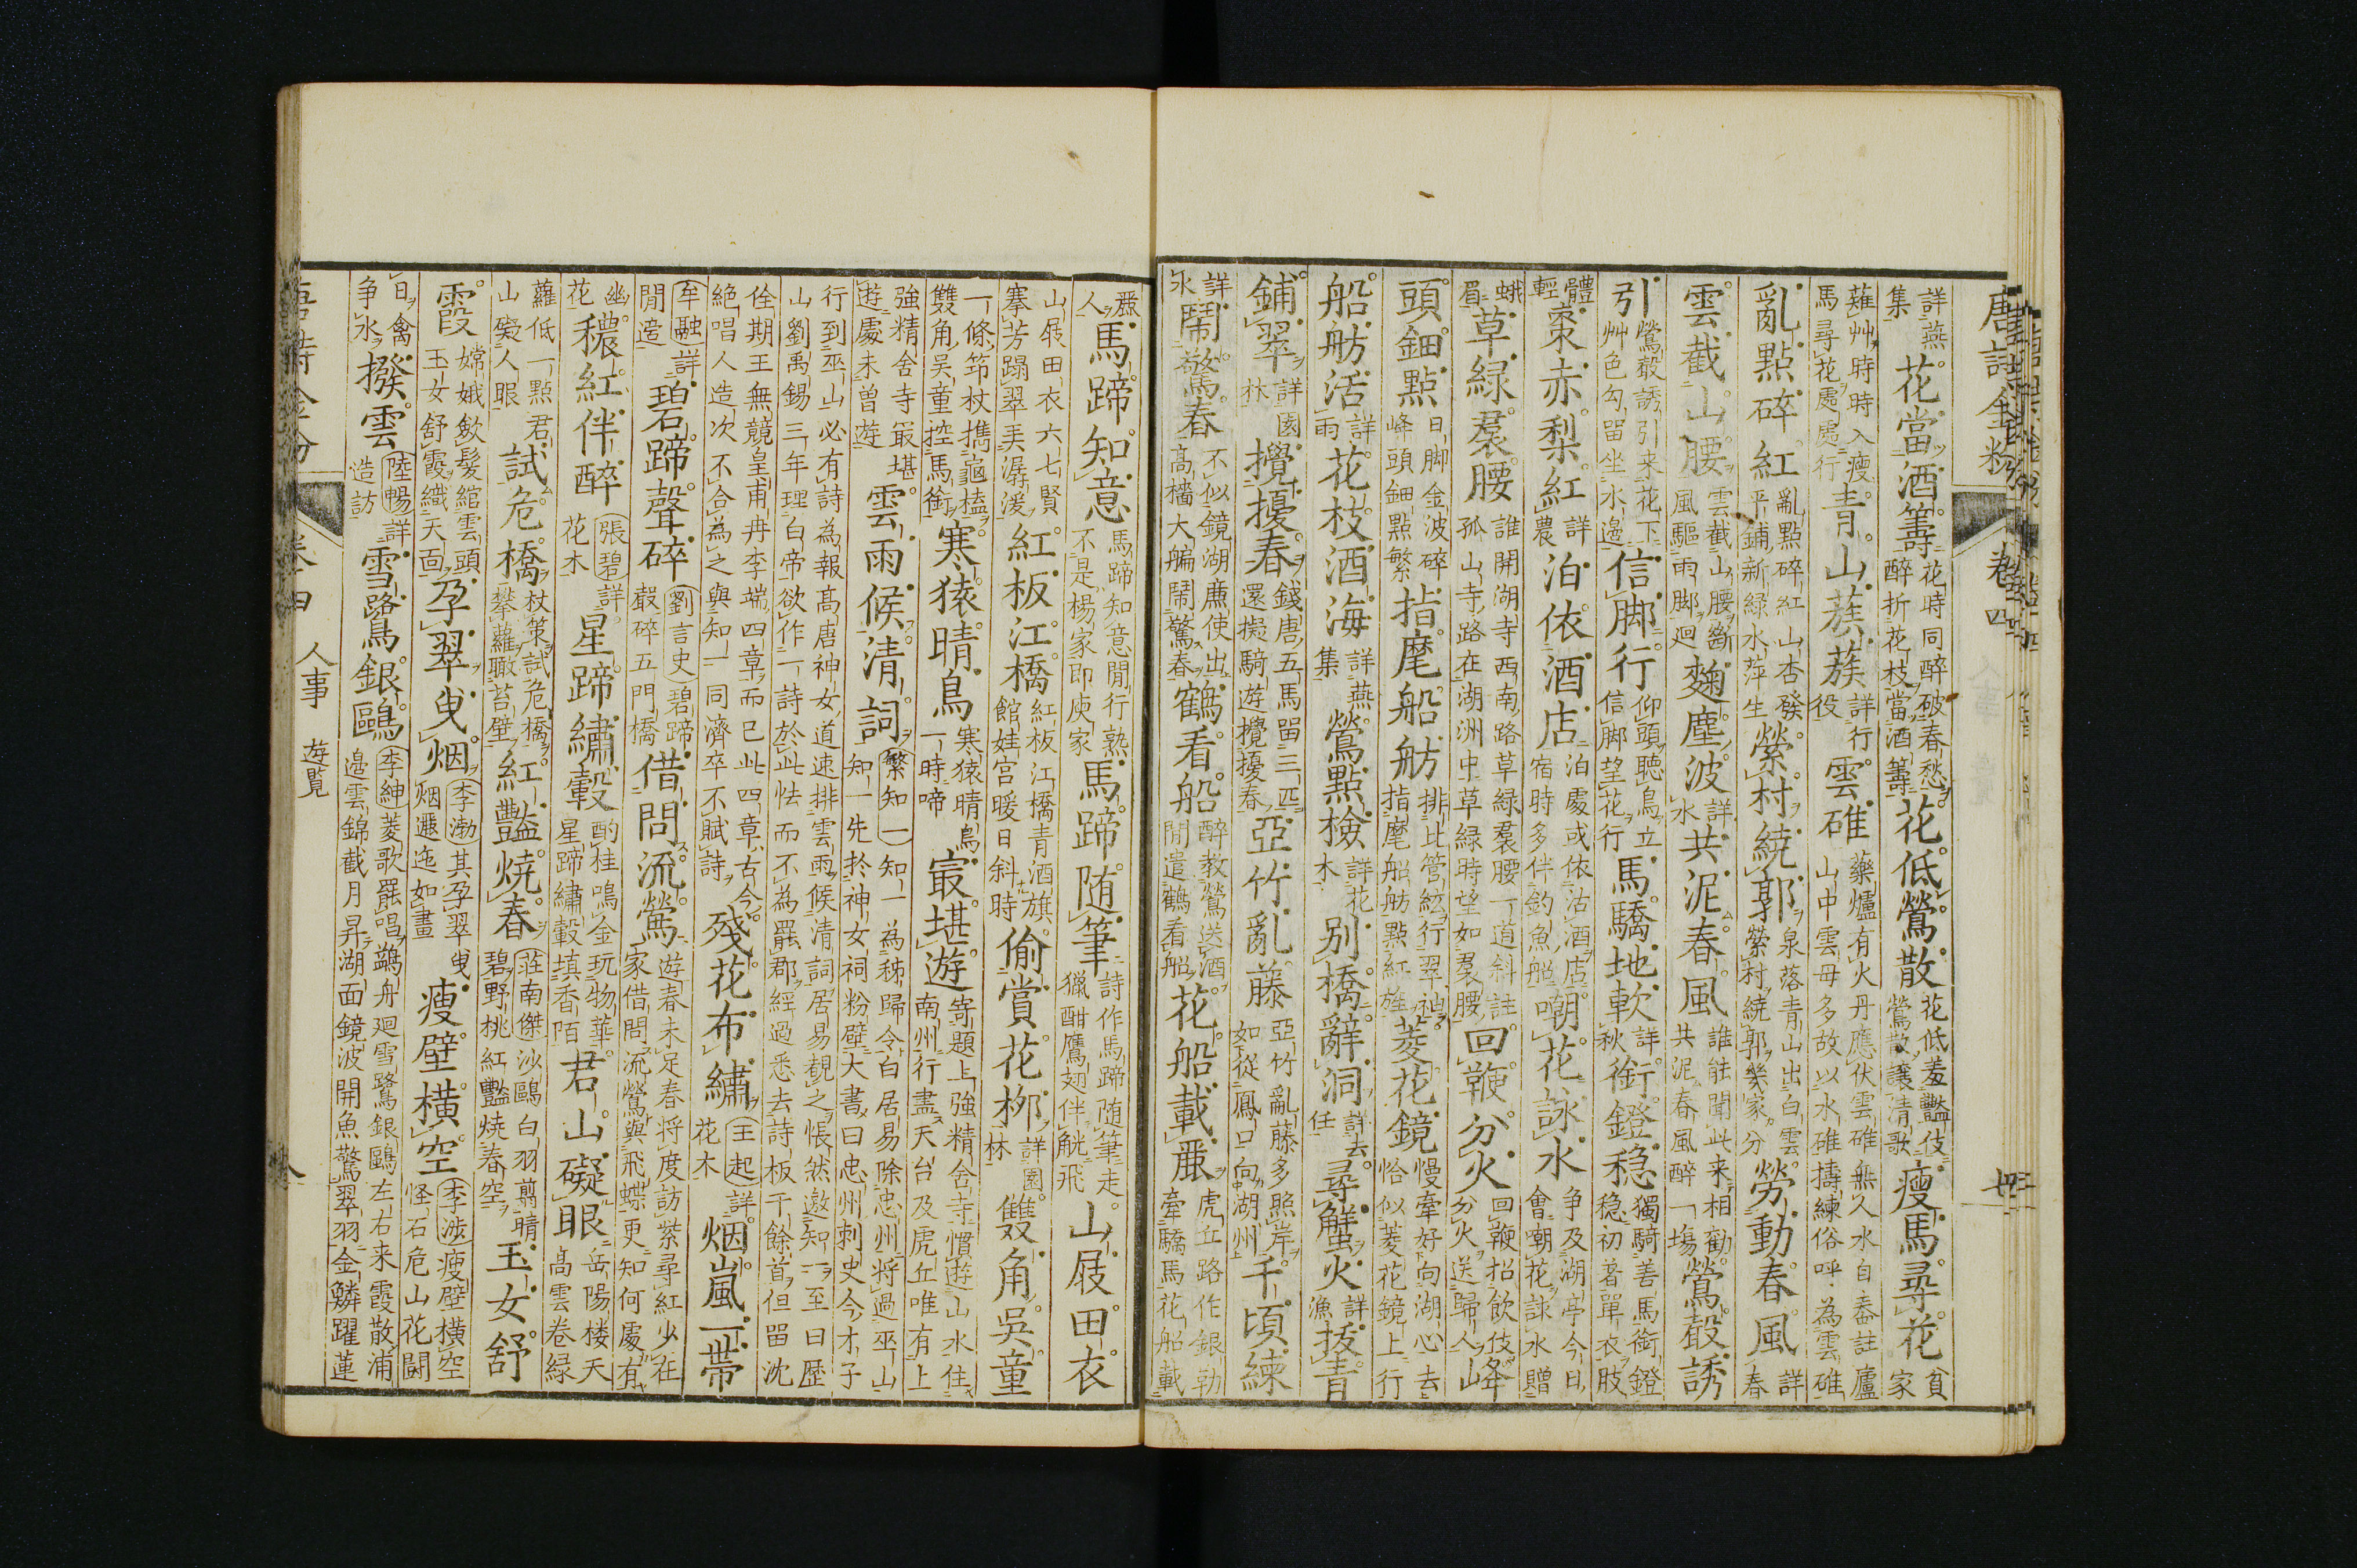 唐詩金粉 卷四
詳燕集花當酒籌花時同醉破春愁醉折花枝當酒籌花低鶯散花低羞艶伎鶯散讓清歌瘦馬尋花貧家
薙艸時時入瘦馬尋花處處行青山蔟蔟詳行役雲碓藥爐有火丹應伏雲碓無人水自舂註廬山中雲母多故以水碓擣練俗呼為雲碓
亂點碎紅亂點碎紅山杏發平鋪新緑水萍生縈村繞郭泉落青山出白雲縈村繞郭幾家分勞動春風詳春
雲截山腰雲截山腰斷風驅雨脚廻麴塵波詳水共泥春風誰能聞此来相勸共泥春風醉一塲鶯殼誘
引鶯殼誘引来花下艸色勾留坐水邊信脚行仰頭聽鳥立信脚望花行馬驕地軟詳秋銜鐙穏獨騎善馬銜鐙穏初著單衣肢
體輕棗赤梨紅詳農泊依酒店泊處或依沽酒店宿時多伴釣魚船嘲花詠水争及湖亭今日會嘲花詠水贈
蛾眉草緑裠腰誰開湖寺西南路草緑裠腰一道斜註孤山寺路在湖洲中草緑時望如裠腰回鞭分火回鞭招飲伎分火送歸人峰
頭鈿點日脚金波碎峰頭鈿點繁指麾船舫排比管絃行翠袖指麾船舫點紅旌菱花鏡慢牽好向湖心去恰似菱花鏡上行
船舫活詳雨花枝酒海詳燕集鶯點檢詳花木別橋辭洞詳去任尋蟹火詳漁拔青
鋪翠詳園林攪擾春錢唐五馬留三匹還擬騎遊攪擾春亞竹亂藤亞竹亂藤多照岸如従鳳口向湖州千頃練
詳水鬧驚春不似鏡湖廉使出高檣大艑鬧驚春鶴看船醉教鶯送酒閒遣鶴看船花船載麗虎丘路作銀勒牽驕馬花船載
麗人馬蹄知意馬蹄知意閒行熟不是楊家即庾家馬蹄随筆詩作馬蹄随筆走獵酣鷹翅伴觥飛山屐田衣
山屐田衣六七賢搴芳蹋翠美潺湲紅板江橋紅板江橋青酒旗館娃宮暖日斜時偷賞花栁詳園林雙角吳童
一條笻杖擕龜榼雙角吳童控馬銜寒猿晴鳥寒猿晴鳥一時啼㝡堪遊寄題上強精舍寺慣遊山水住南州行盡天台及虎丘唯有上
強精舍寺㝡堪遊處未曾遊雲雨候清詞繁知一知一為秭歸令白居易除忠州将過巫山知一先於神女祠粉壁大書曰忠州刺史今才子
行到巫山必有詩為報高唐神女道速排雲雨候清詞居易覩之悵然邀知一至曰歷山劉禹錫三年理白帝欲作一詩於此怯而不為罷郡經過悉去詩板千餘首但留沈
佺期王無競皇甫冉李端四章而已此四章古今絶唱人造次不合為之與知一同濟卒不賦詩殘花布繡王起詳花木烟嵐一帶
牟融詳閒適碧蹄聲碎劉言史碧蹄聲碎五門橋借問流鶯遊春未足春将度訪紫尋紅少在家借問流鶯與飛蝶更知何處有
幽花穠紅伴醉張碧詳花木星蹄繡轂酌桂鳴金玩物華星蹄繡轂填香陌君山礙眼岳陽楼天高雲卷緑
蘿低一點君山礙人眼試危橋杖策試危橋攀蘿瞰苔壁紅豔燒春莊南傑沙鷗白羽翦晴碧野桃紅豔燒春空玉女舒
霞嫦娥斂髮綰雲頭玉女舒霞織天面孕翠曳烟李渤其孕翠曳烟邐迤如畫瘦壁橫空李涉瘦壁橫空怪石危山花闘
日禽争水撥雲陸暢詳造訪雪鷺銀鷗李紳菱歌罷唱鷁舟廻雪鷺銀鷗左右来霞散浦邊雲錦截月昇湖面鏡波開魚驚翠羽金鱗躍蓮
唐詩金粉 卷四 人事 遊覧